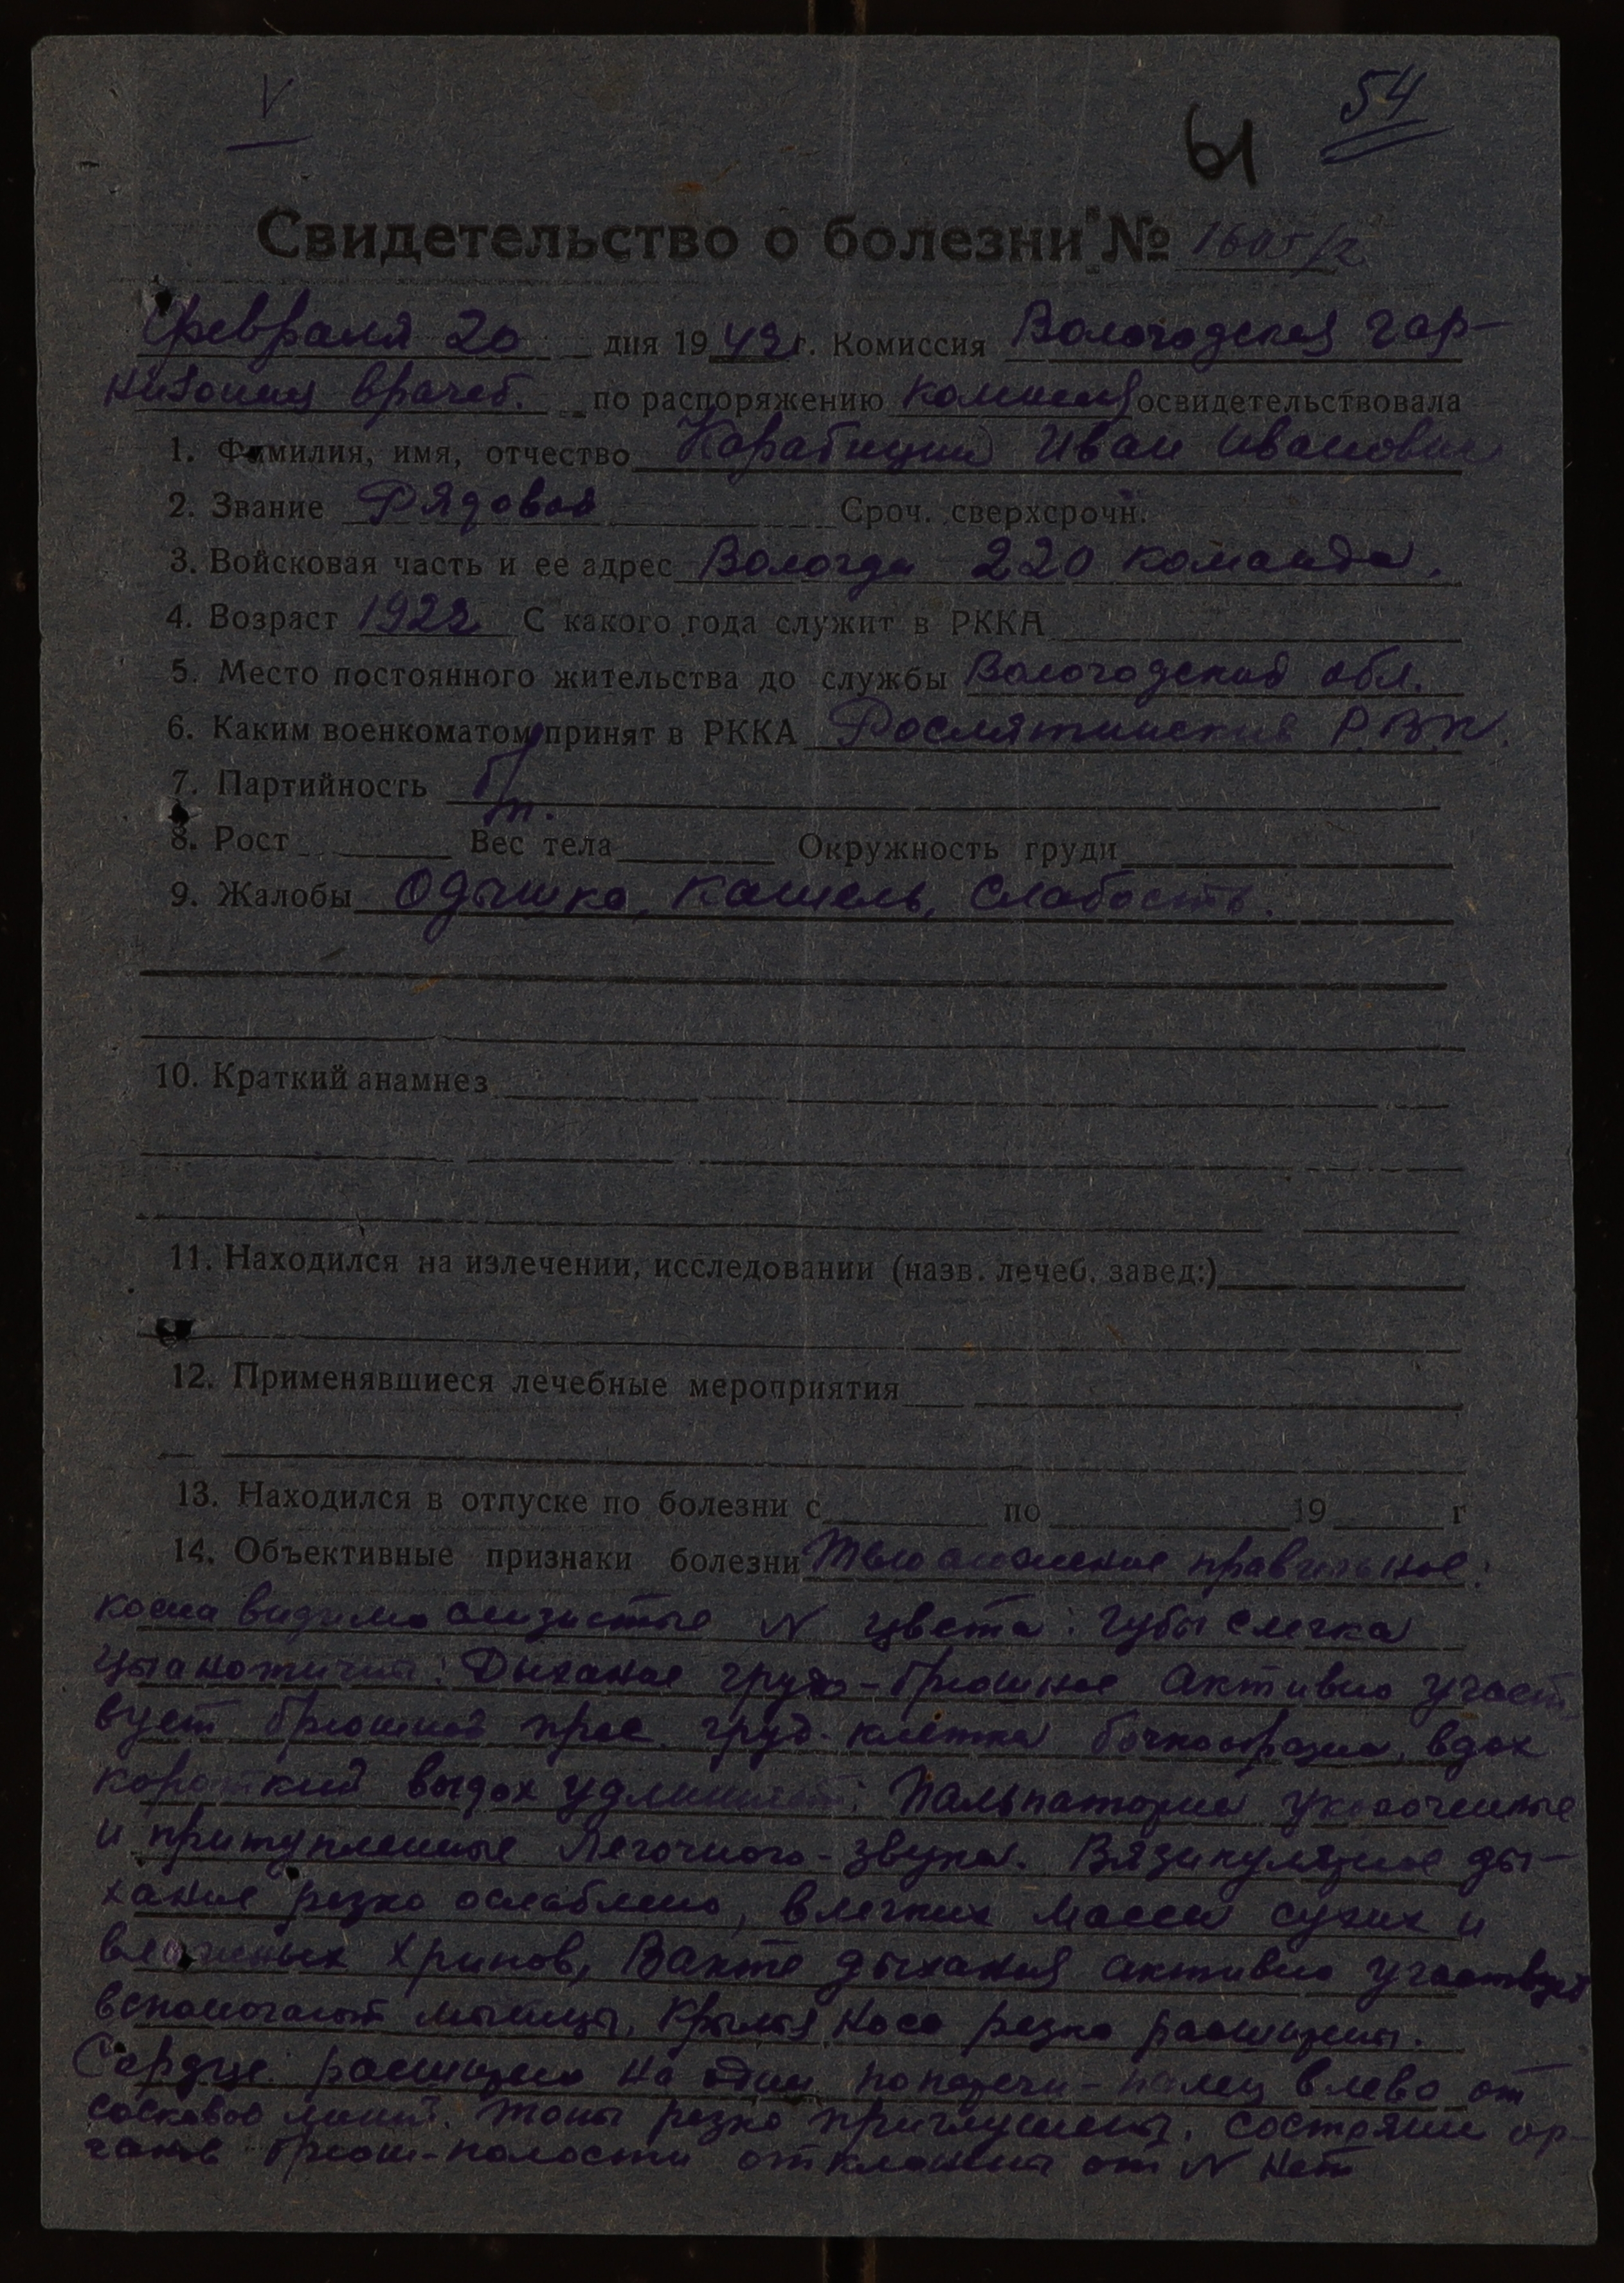 V
54
61
Свидетельство о болезни № 1605/2
Февраля 20 дня 1942 г. Комиссия Вологодская гар-
низонная врачеб. по распоряжению освидетельствовала
1. Фамилия, имя, отчество Карабицин Иван Иванович
2. Звание Рядовой Сроч. сверхсрочн.
3. Войсковая часть и ее адрес Вологда 220 команда.
4. Возраст 1922 С какого года служит в РККА
5. Место постоянного жительства до службы Вологодской обл.
6. Каким военкоматом принят в РККА Рослятинский Р.В.К.
7. Партийность б/п.
8. Рост Вес тела Окружность груди
9. Жалобы Одышка, Кашель, Слабость.
10. Краткий анамнез
11. Находился на излечении, исследовании (назв. лечеб. завед:)
12. Применявшиеся лечебные мероприятия
13. Находился в отпуске по болезни с по 19 г
14. Объективные признаки болезни Телосложение правильное:
кожа видимо слизистые N цвета: губы слегка
Дыхание грудо-брюшное Активно участ
вует брюшной прес. груд. клетка бочкообразна, вдох
короткий выдох Пальпаторно укороченные
и притупленные Легочного-звука. Вязикулярное ды-
хание резко ослаблено, в легких масса сухих и
влажных хрипов, В акте дыхания активно участвует
вспомогают мышцы, Крылья носа резко расширены.
Сердце расширено на один попереч-палец влево от
сосковой линий. тоны резко приглушены. состояние ор-
ганов брюш-полости отклонения от N нет